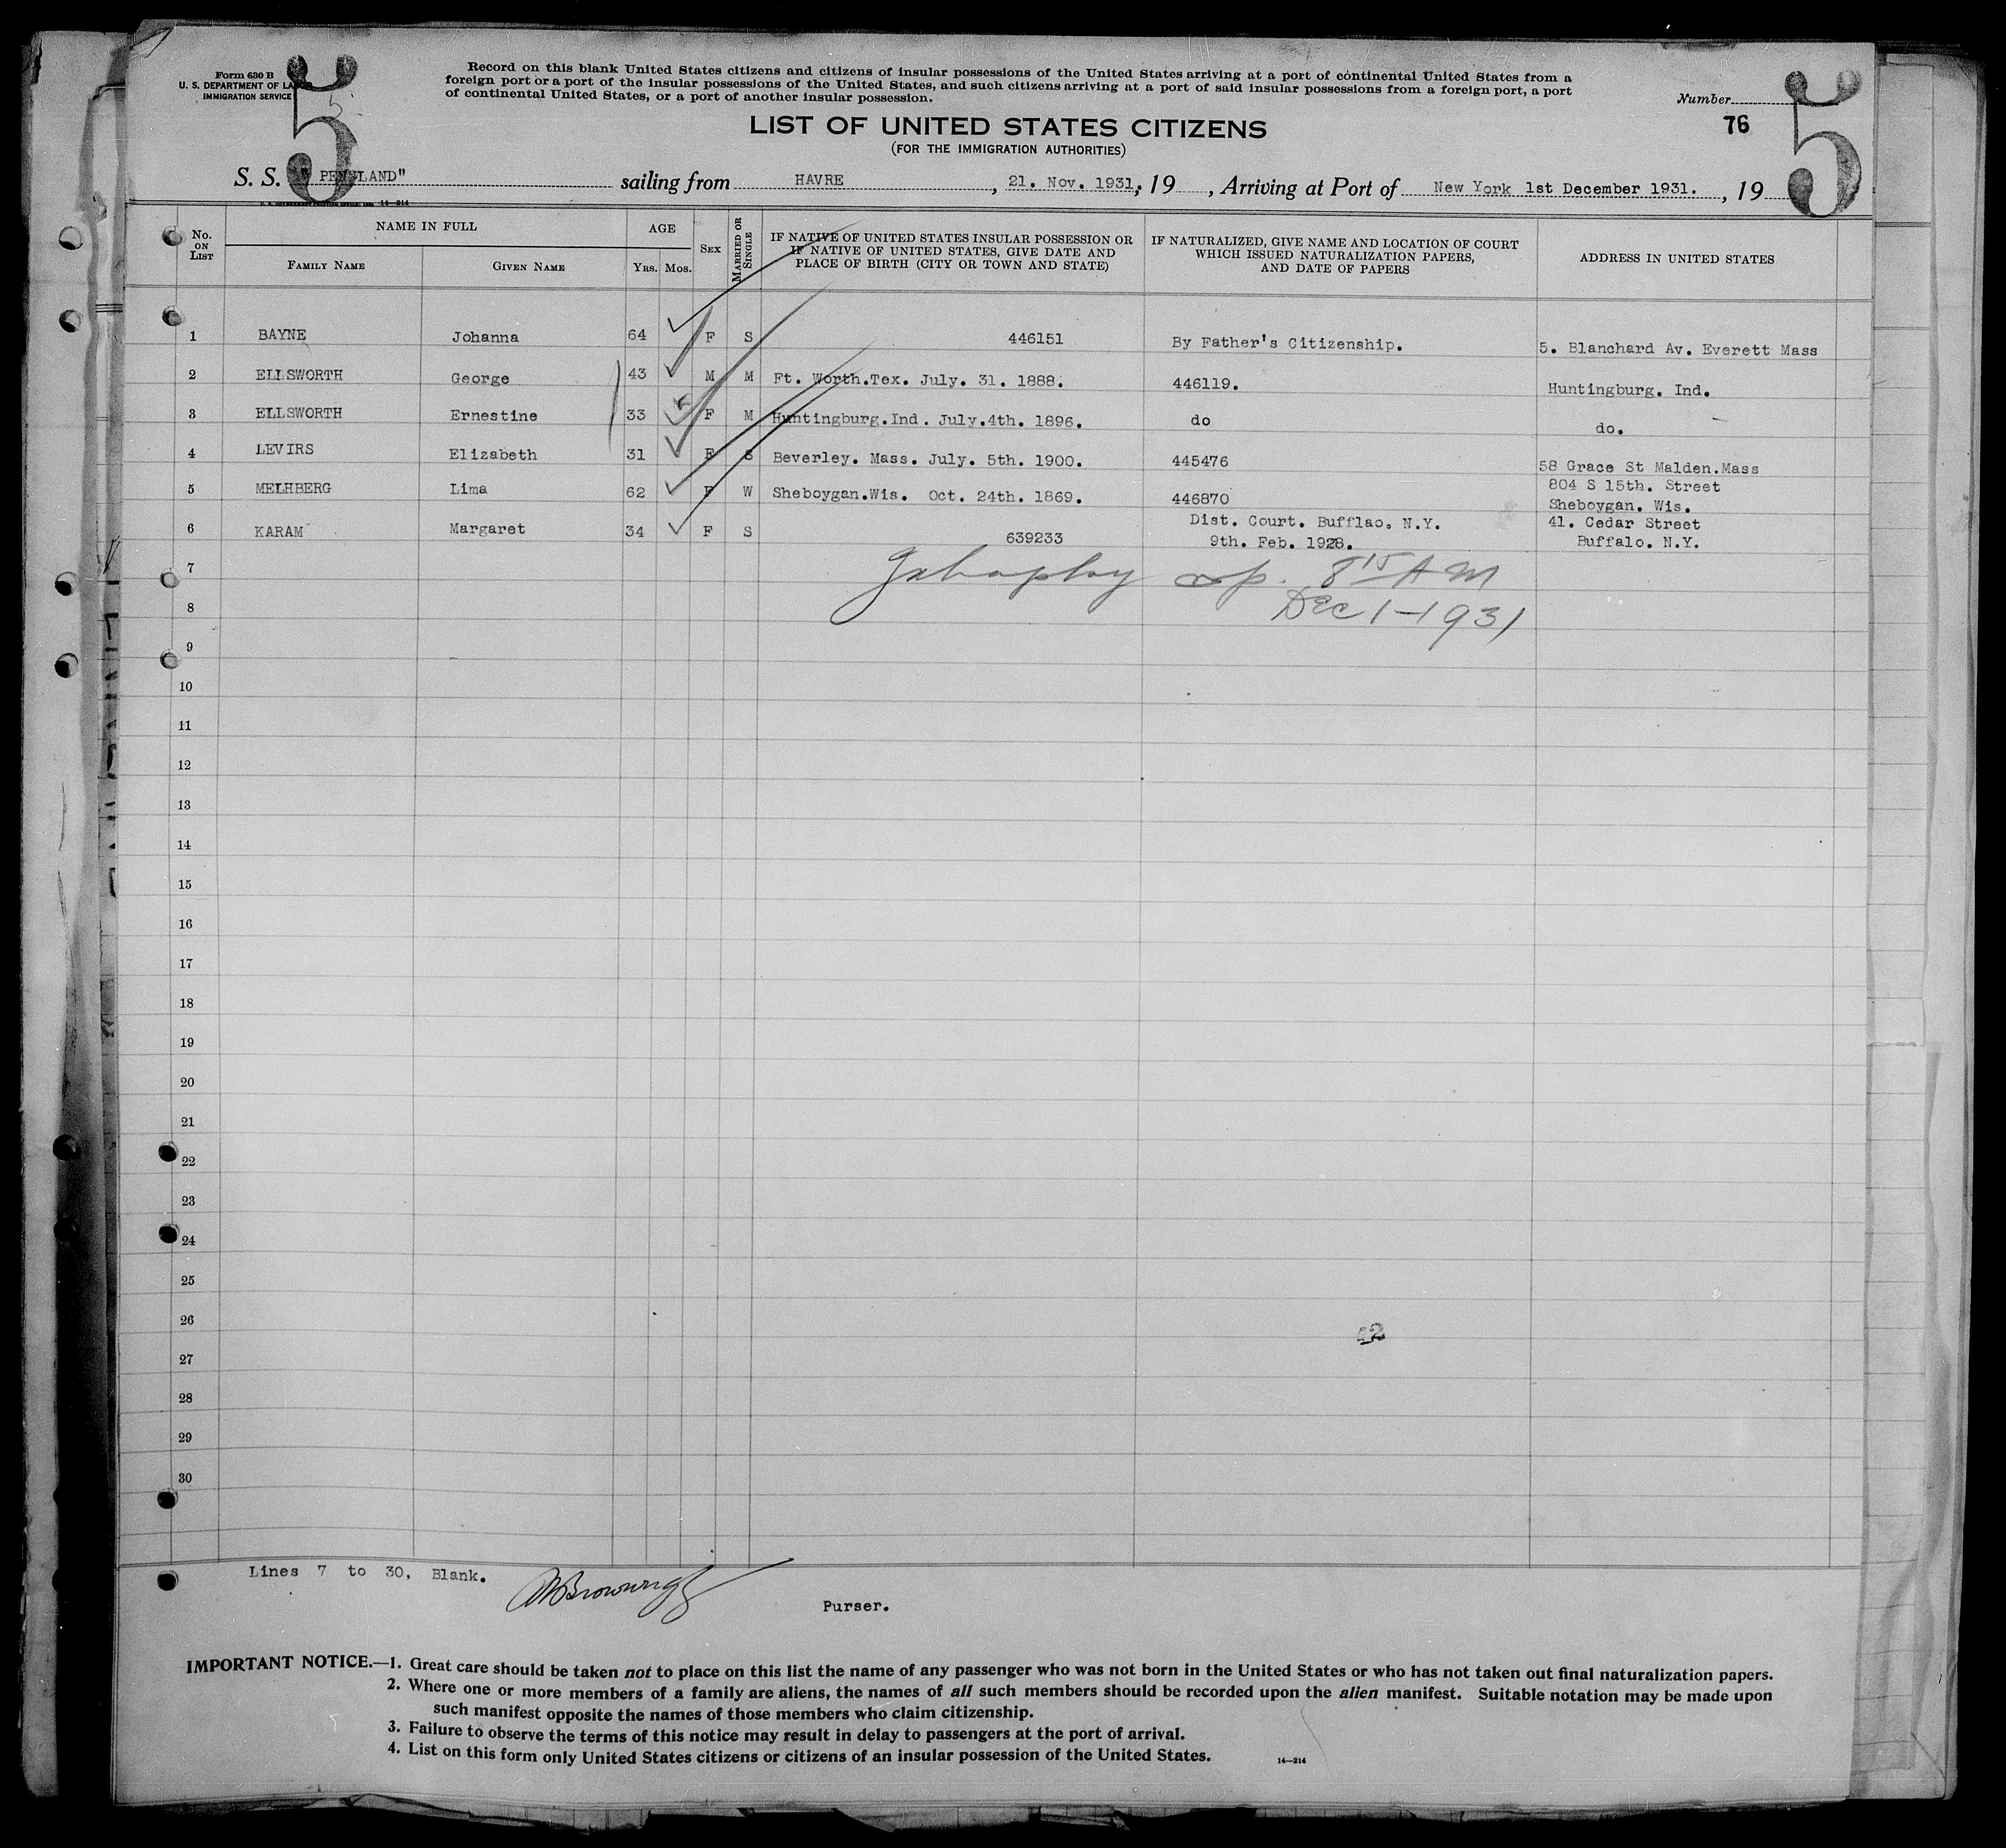 Form 630 B
U. S. DEPARTMENT OF LABOR
IMMIGRATION SERVICE
5
5
Record on this blank United States citizens and citizens of insular possessions of the United States arriving at a port of continental United States from a
foreign port or a port of the insular possessions of the United States, and such citizens arriving at a port of said insular possessions from a foreign port, a port
of continental United States, or a port of another insular possession.
Number
76
5
LIST OF UNITED STATES CITIZENS
(FOR THE IMMIGRATION AUTHORITIES)
S. S. "PENNLAND" sailing from HAVRE, 21. Nov. 1931, 19 , Arriving at Port of New York 1st December 1931. , 19
14-214
No. ON LIST
NAME IN FULL
FAMILY NAME
GIVEN NAME
AGE
YRS. MOS.
SEX
MARRIED OR SINGLE
IF NATIVE OF UNITED STATES INSULAR POSSESSION OR
IF NATIVE OF UNITED STATES, GIVE DATE AND
PLACE OF BIRTH (CITY OR TOWN AND STATE)
IF NATURALIZED, GIVE NAME AND LOCATION OF COURT
WHICH ISSUED NATURALIZATION PAPERS,
AND DATE OF PAPERS
ADDRESS IN UNITED STATES
1 BAYNE Johanna 64 F S 446151 By Father's Citizenship. 5. Blanchard Av. Everett Mass
2 ELLSWORTH George 43 M M Ft. Worth.Tex. July. 31. 1888. 446119. Huntingburg. Ind.
3 ELLSWORTH Ernestine 33 F M Huntingburg.Ind. July.4th. 1896. do do.
4 LEVIRS Elizabeth 31 F S Beverley. Mass. July. 5th. 1900. 445476 58 Grace St Malden.Mass
5 MELHBERG Lima 62 F W Sheboygan.Wis. Oct. 24th. 1869. 446870 804 S 15th. Street
Sheboygan. Wis.
6 KARAM Margaret 34 F S 639233 Dist. Court. Bufflao. N.Y. 41. Cedar Street
9th. Feb. 1928. Buffalo. N.Y.
7
8 15 AM
8
Dec 1-1931
9
10
11
12
13
14
15
16
17
18
19
20
21
22
23
24
25
26
27
28
29
30
Lines 7 to 30, Blank.
Browning
Purser.
IMPORTANT NOTICE.—1. Great care should be taken not to place on this list the name of any passenger who was not born in the United States or who has not taken out final naturalization papers.
2. Where one or more members of a family are aliens, the names of all such members should be recorded upon the alien manifest. Suitable notation may be made upon
such manifest opposite the names of those members who claim citizenship.
3. Failure to observe the terms of this notice may result in delay to passengers at the port of arrival.
4. List on this form only United States citizens or citizens of an insular possession of the United States.
14—214